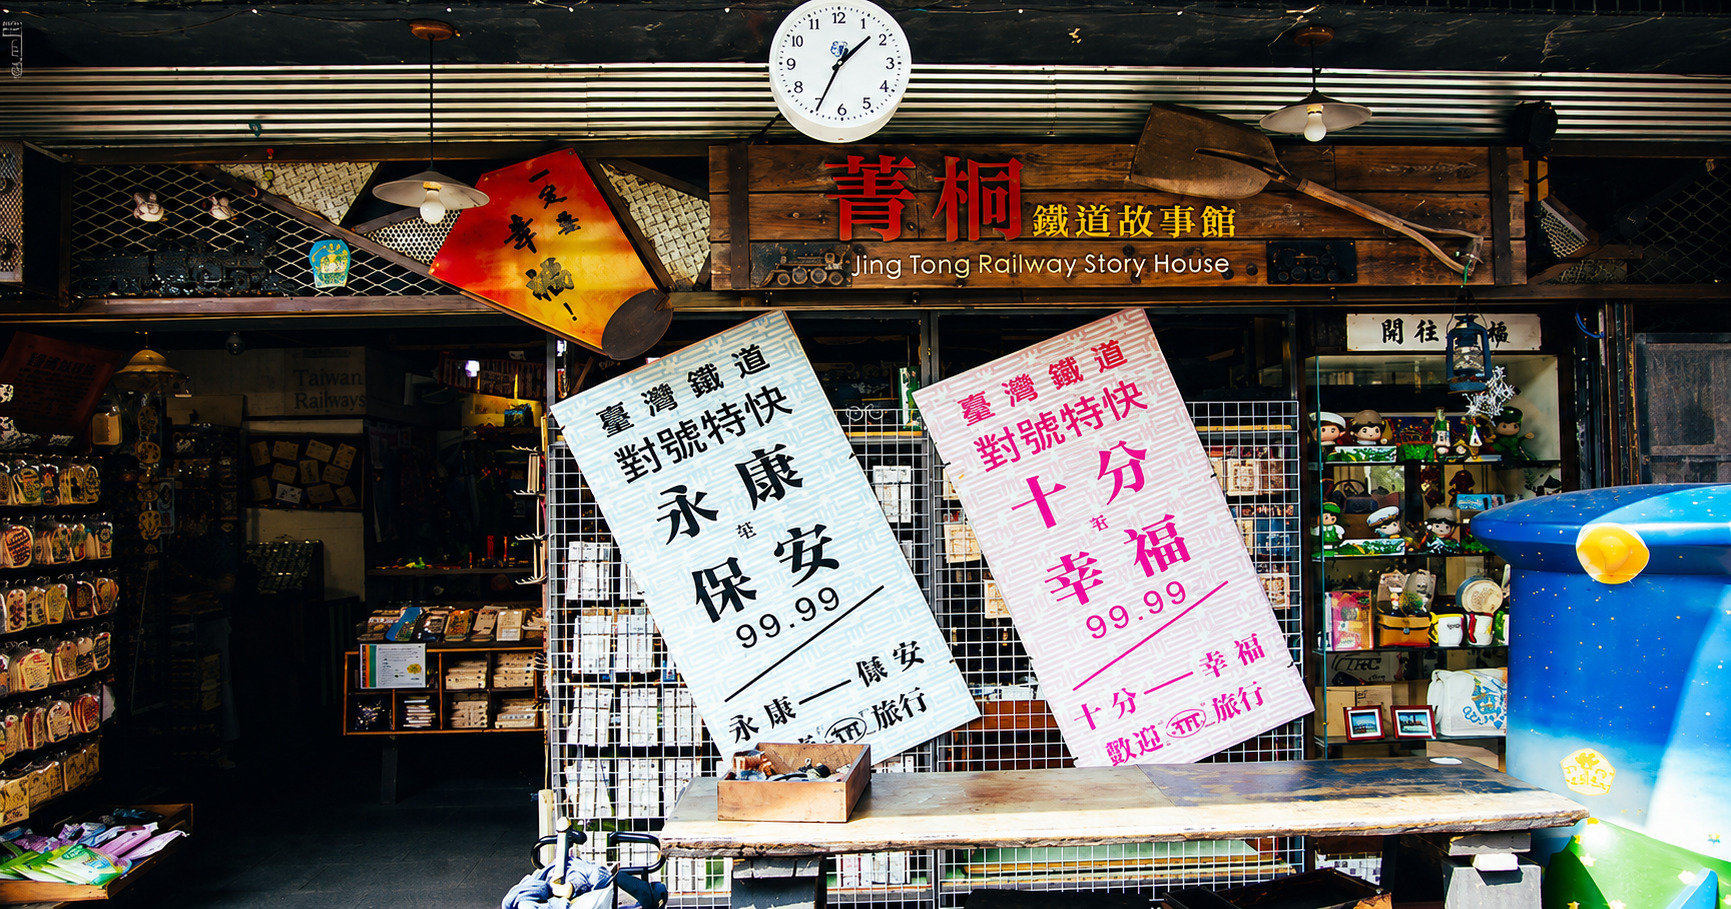 12
1
2
3
4
5
6
8
9
10
11
一定要
幸福!
菁桐
鐵道故事館
Jing Tong Railway Story House
開往
福
Taiwan
Railways
臺灣鐵道
對號特快
永康
保安
99.99
永康
安
旅行
臺灣鐵道
對號特快
十分
幸福
99.99
十分—幸福
歡迎 旅行